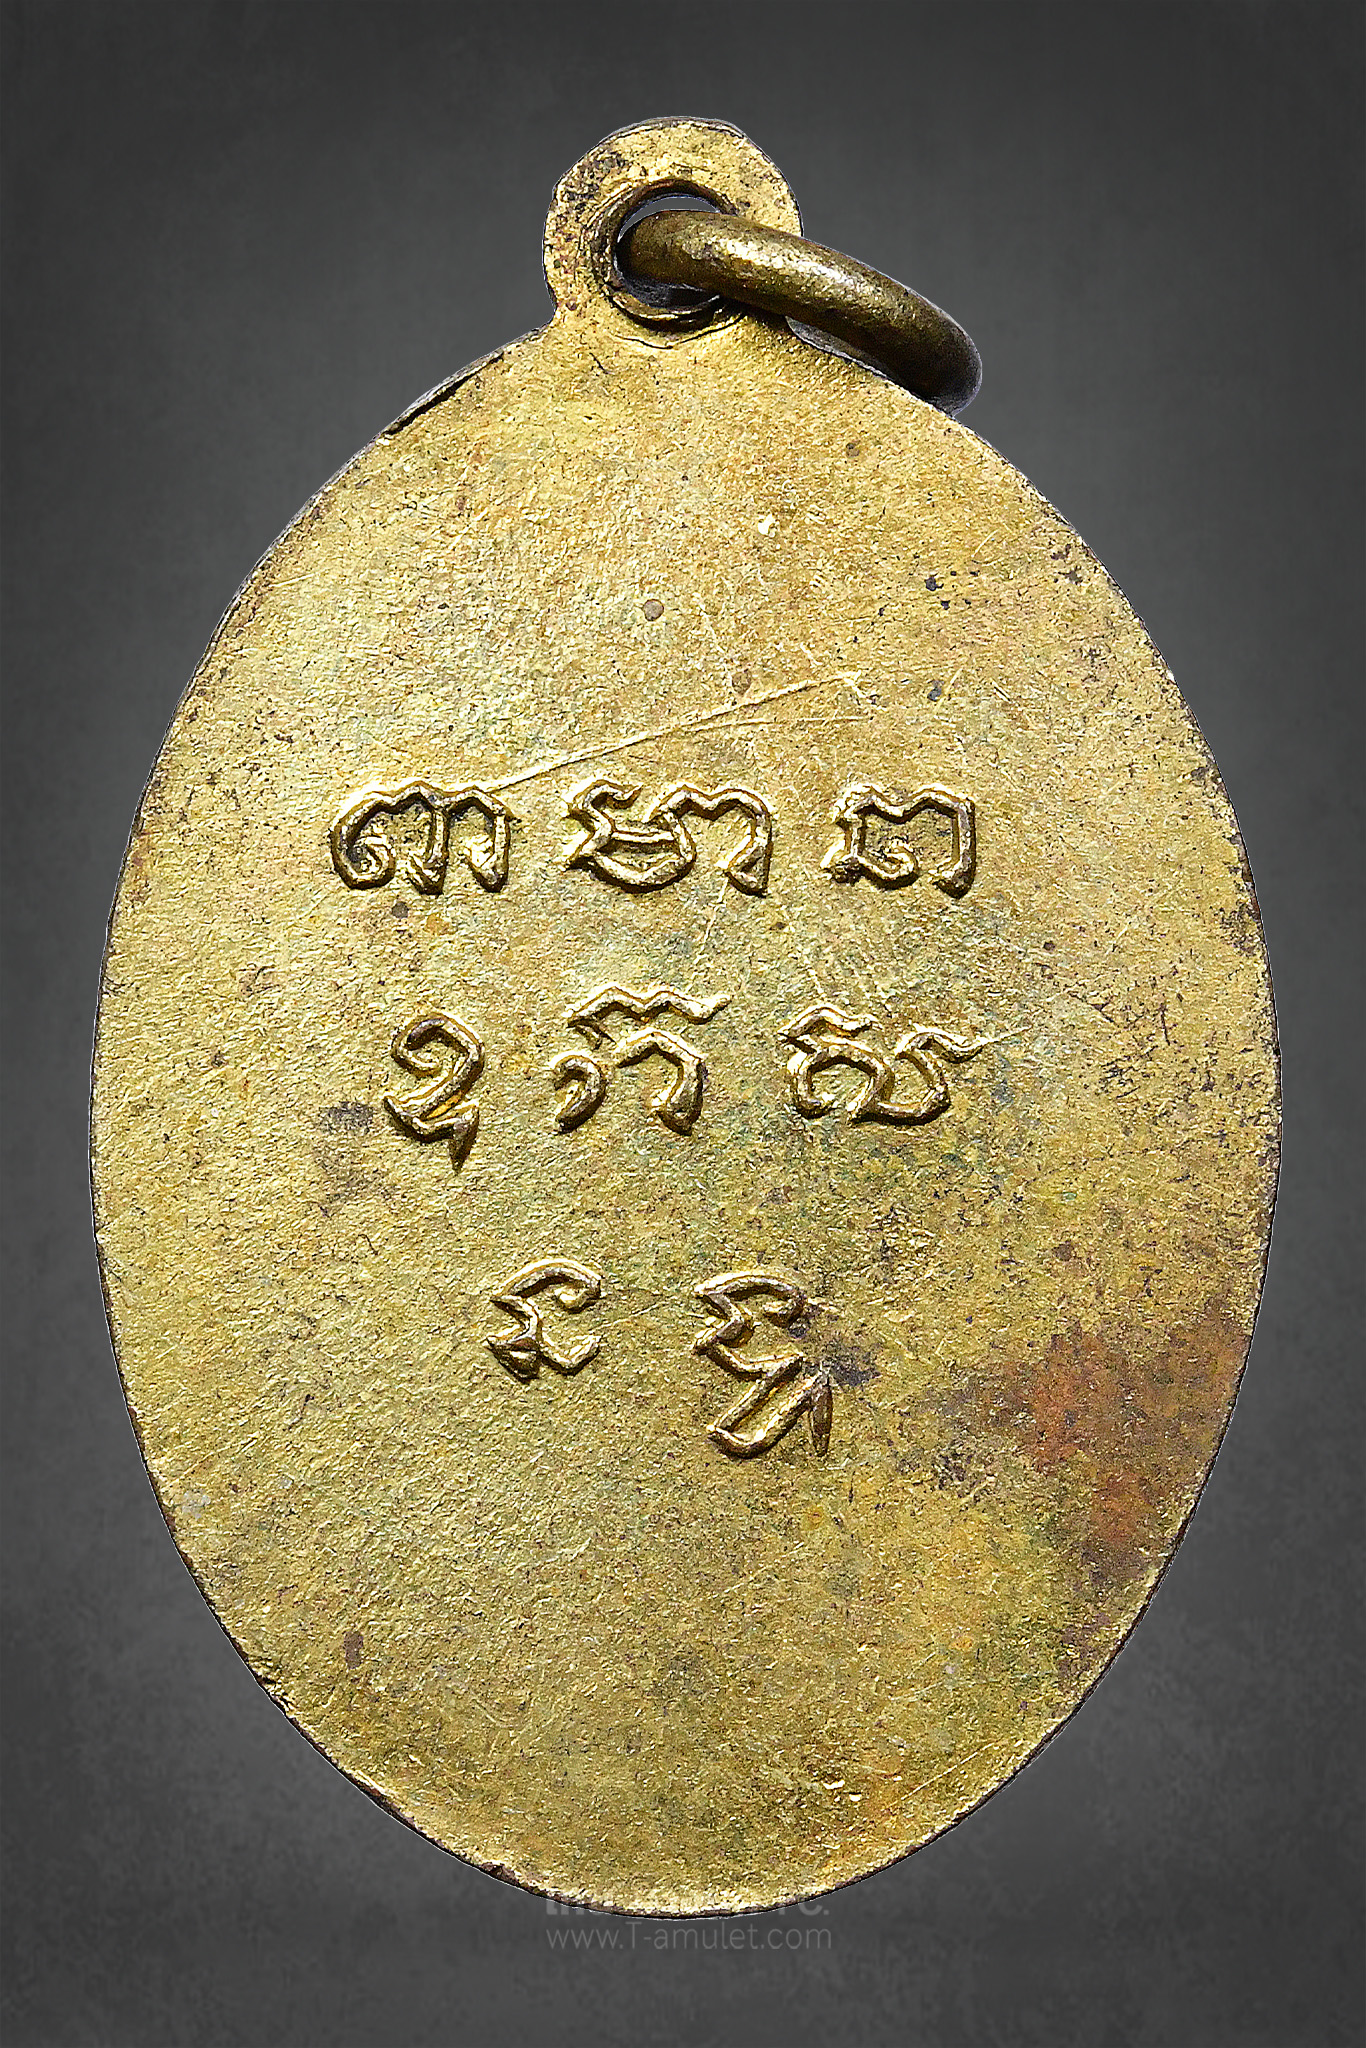 ពា មា
ឧ ក ស
ន ទុ
www.T-amulet.com